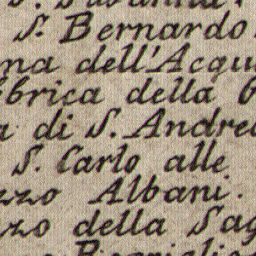 S. Bernardo
dell'Acqu
brica della
di S. Andre
S. Carlo alle
zzo Albani.
zzo della Sag